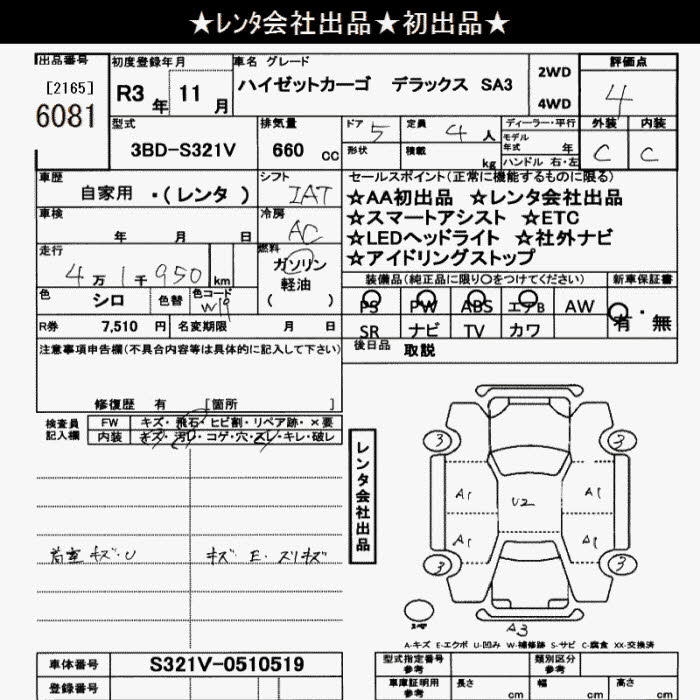 ★レンタ会社出品★初出品★
出品番号 初度登録年月 車名 グレード 評価点
[2165] 6081
R3年 11月 ハイゼットカーゴ デラックス SA3 2WD 4WD 4
型式 排気量 ドア 5 定員 4人 ディーラー・平行 外装 内装
3BD-S321V 660cc 形状 積載 kg モデル年式 年 C C
ハンドル 右・左
車歴 シフト セールスポイント(正常に機能するものに限る)
自家用 ・(レンタ) IAT ☆AA初出品 ☆レンタ会社出品
車検 年 月 日 冷房 AC ☆スマートアシスト ☆ETC
☆LEDヘッドライト ☆社外ナビ
走行 4万1千950km 燃料 ガソリン 軽油 ( ) ☆アイドリングストップ
装備品(純正品に限り○をつけてください) 新車保証書
色 シロ 色替 色コード W19 PS PW ABS エアB AW 有・無
R券 7,510円 名変期限 月 日 SR ナビ TV カワ
注意事項申告欄(不具合内容等は具体的に記入して下さい) 後日品 取説
修復歴 有 [箇所 ]
検査員記入欄 FW キズ・飛石・ヒビ割・リペア跡・×要
内装 キズ・汚レ・コゲ・穴・スレ・キレ・破レ
レンタ会社出品
3 3
A1 U2 A1
A1 A1
荷室 キズ・U キズ E・スリキズ
3 3
スペア
A3
A-キズ E-エクボ U-凹み W-補修跡 S-サビ C-腐食 XX-交換済
車体番号 S321V-0510519 型式指定番号 参考 類別区分 参考
登録番号 車庫証明用 参考 長さ cm 幅 cm 高さ cm